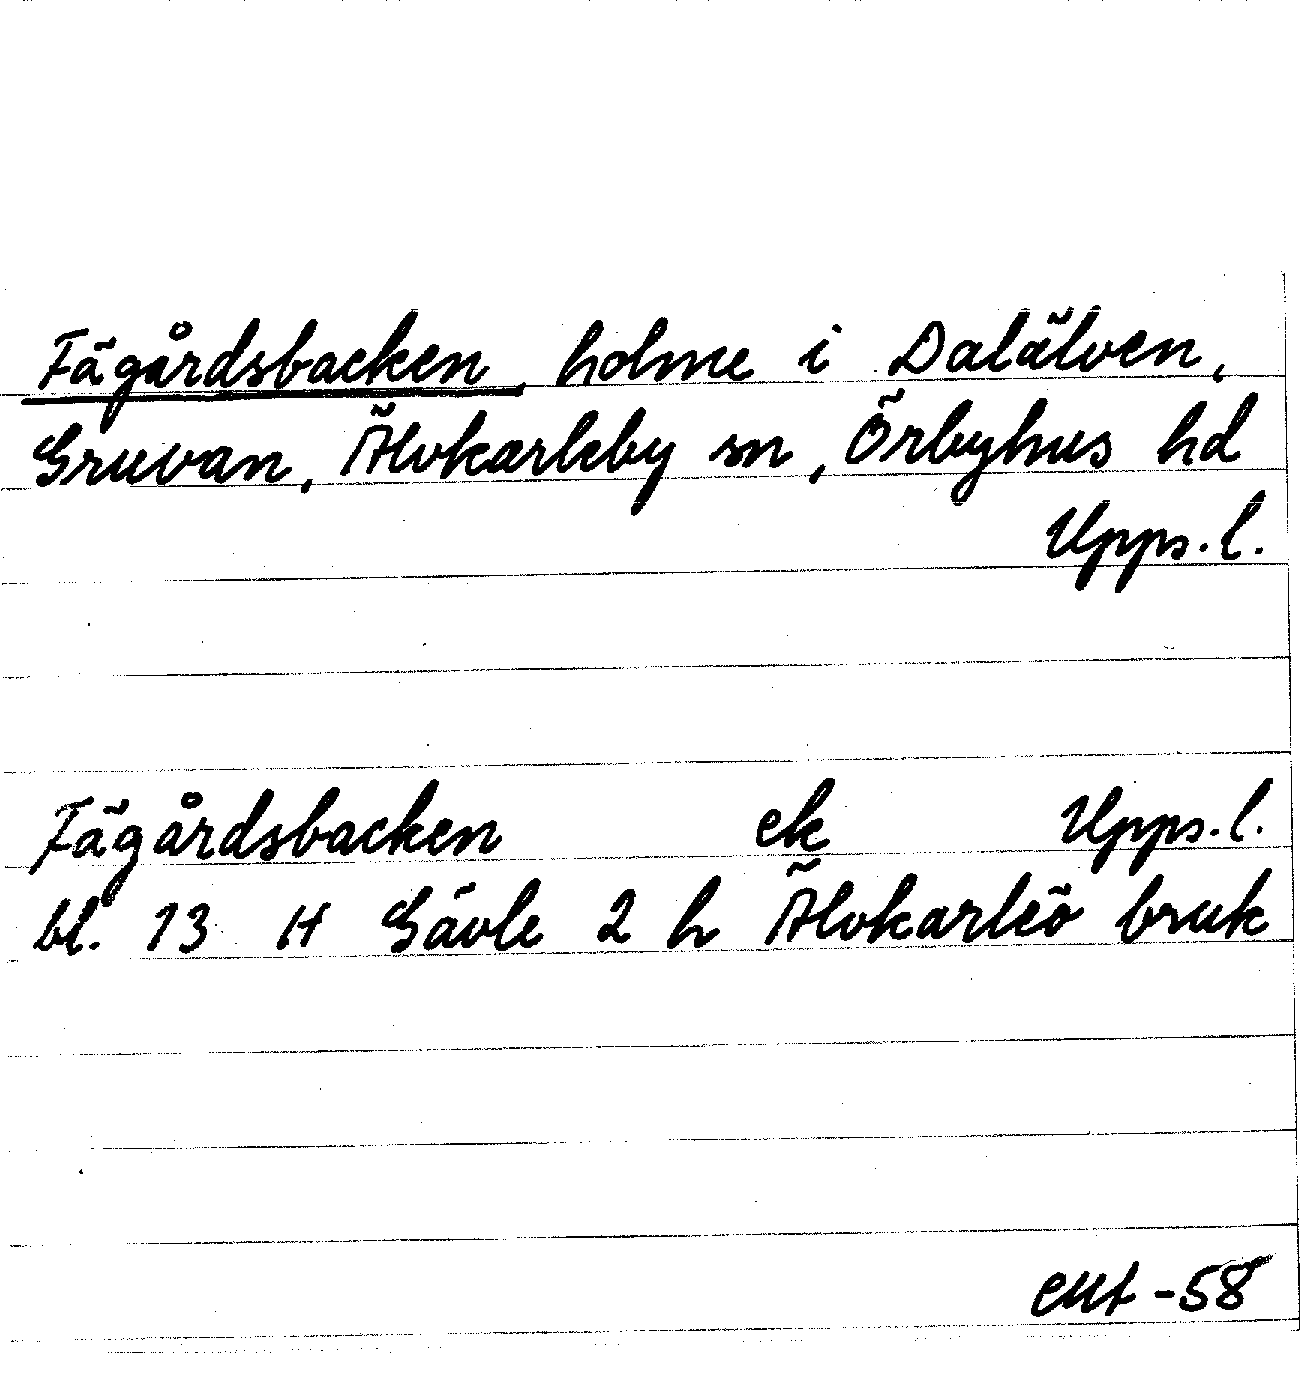 Fägårdsbacken, holme i Dalälven,
Gruvan, Älvkarleby sn, Örbyhus hd
Upps.l.
Fägårdsbacken ek Upps.l.
bl. 13 H Gävle 2 h Älvkarleö bruk
-58